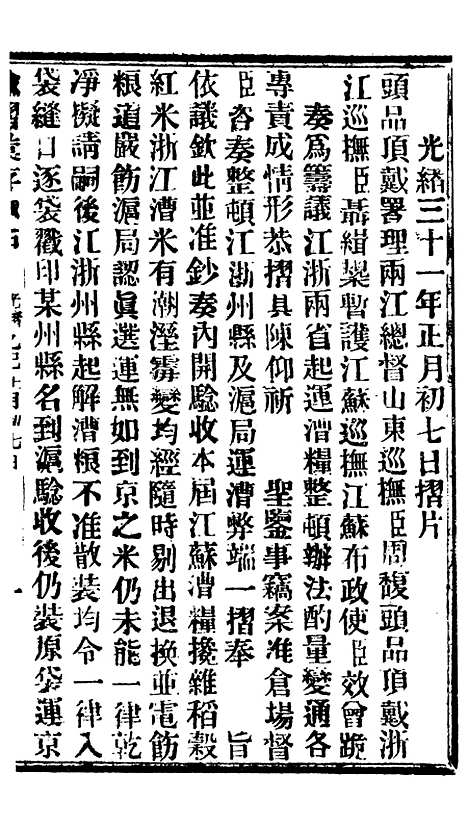 光緒三十一年正月初七日摺片
頭品頂戴署理兩江總督山東巡撫臣周馥頭品頂戴浙
江巡撫臣聶緝槼暫護江蘇巡撫江蘇布政使臣效曾跪
奏爲籌議江浙兩省起運漕糧整頓辦法酌量變通各
專責成情形恭摺具陳仰祈 聖鑒事竊案准倉場督
臣咨奏整頓江浙州縣及滬局運漕弊端一摺奉 旨
依議欽此並准鈔奏內開驗收本屆江蘇漕糧攙雜稻穀
紅米浙江漕米有潮溼霉變均經隨時剔出退換並電飭
粮道嚴飭滬局認眞選運無如到京之米仍未能一律乾
凈擬請嗣後江浙州縣起解漕粮不准散裝均令一律入
袋縫口逐袋戳印某州縣名到滬驗收後仍裝原袋運京
月初七日 一